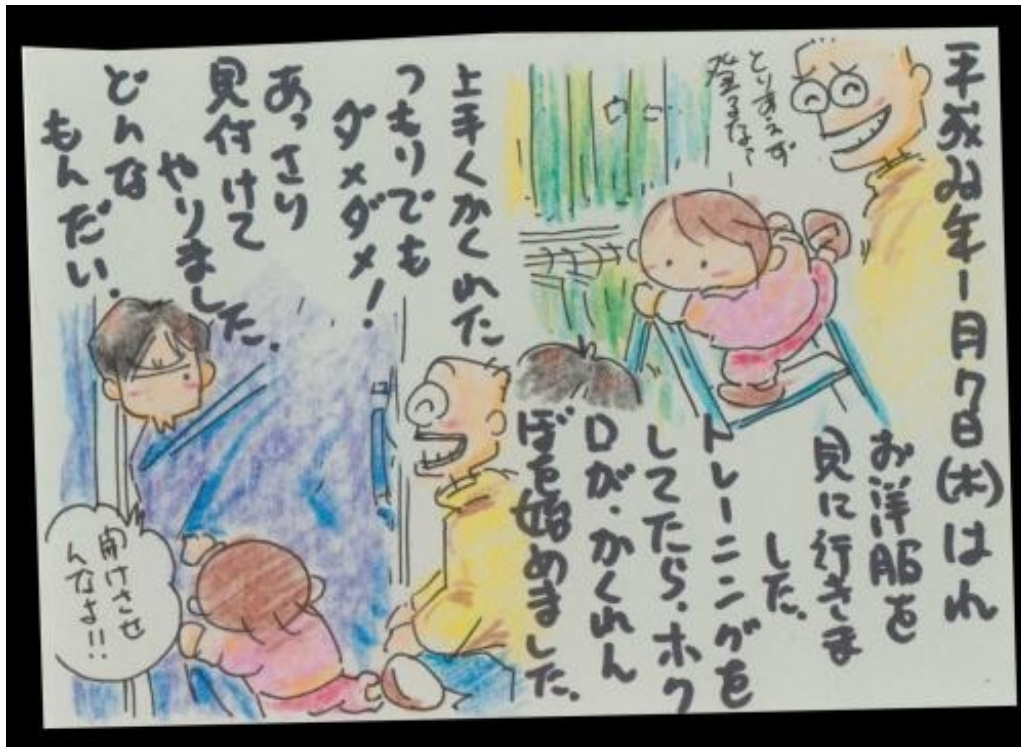 平成22年1月7日(木)はれ
お洋服を
見に行きま
した。
トレーニングを
してたら、ホク
ロが、かくれん
ぼを始めました。
とりあえず
登るな〜
上手くかくれた
つもりでも
ダメダメ!
あっさり
見付けて
やりました。
どんな
もんだい。
開けさせ
んなよ!!